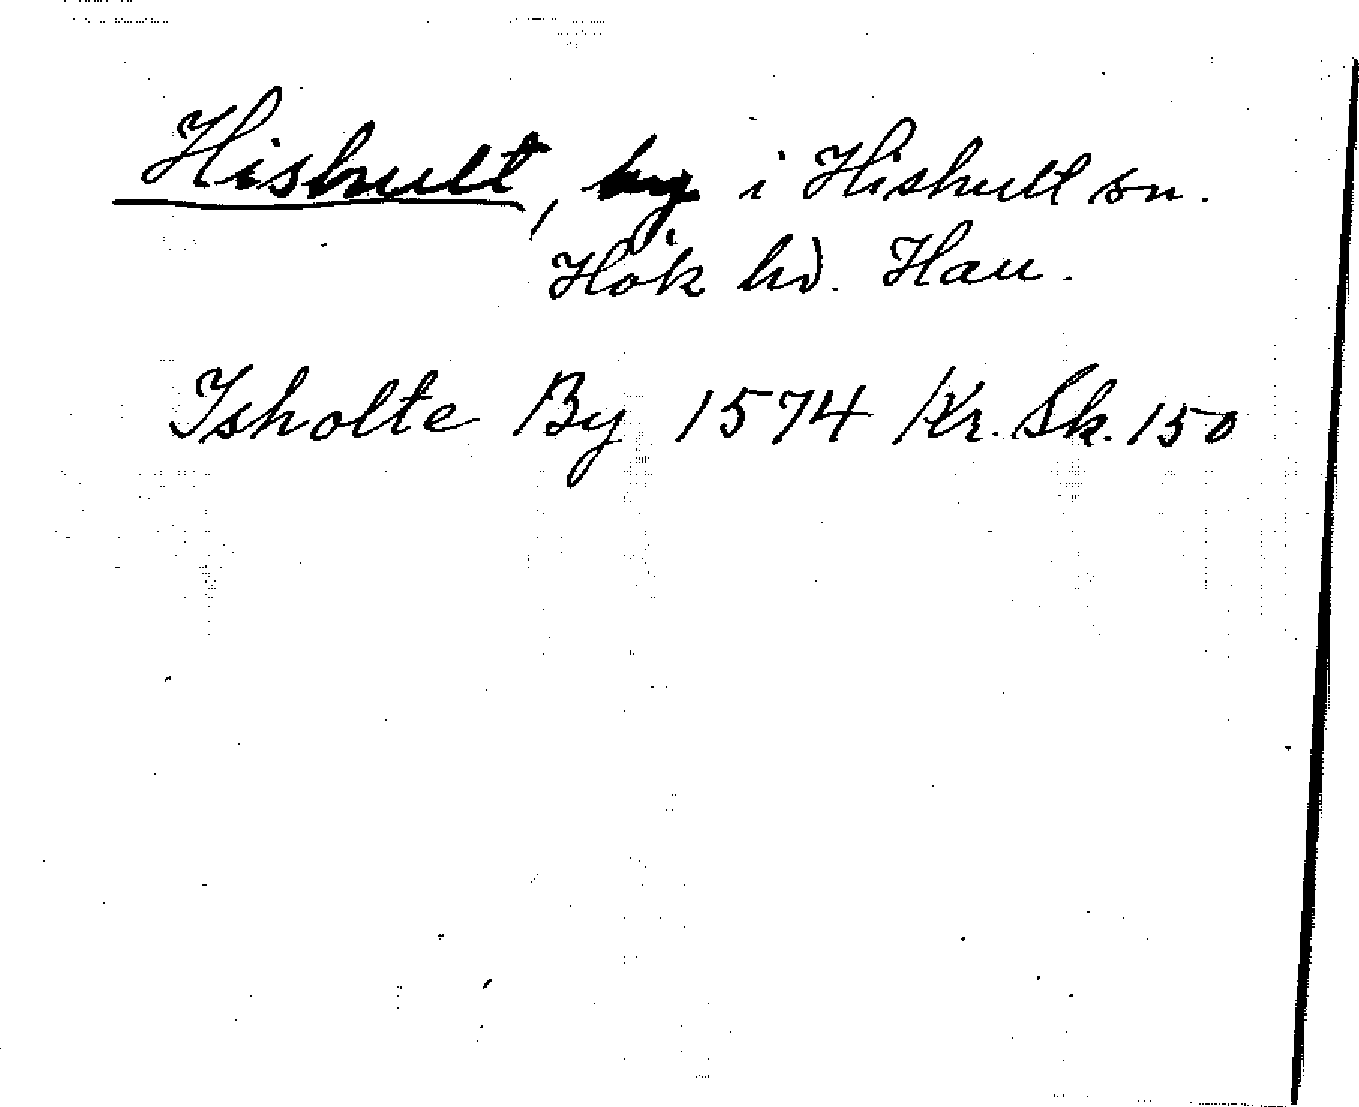 Hishult, by i Hishult sn.
Hök hd. Hall.
Isholte By 1574 Kr. Sk. 150